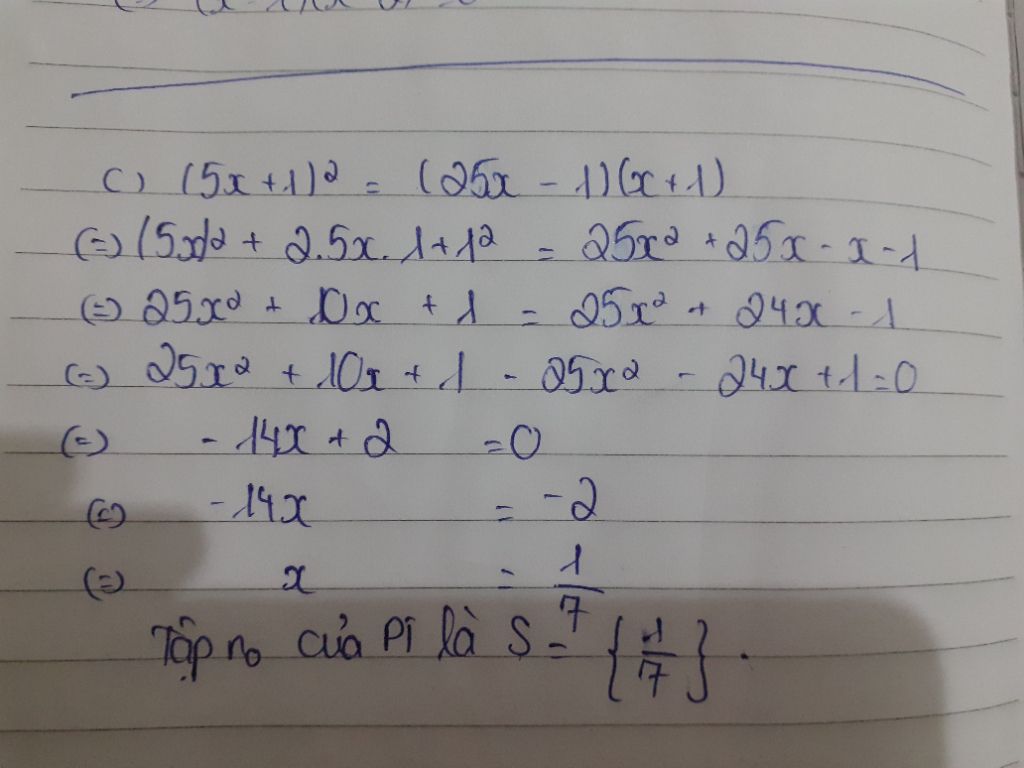 c) (5x+1)² = (25x - 1)(x+1)
(=) (5x)² + 2.5x.1+1² = 25x² + 25x - x - 1
(=) 25x² + 10x + 1 = 25x² + 24x - 1
(=) 25x² + 10x + 1 - 25x² - 24x + 1 = 0
(=) -14x + 2 = 0
(=) -14x = -2
(=) x = 1/7
Tập no của PT là S = {1/7}.